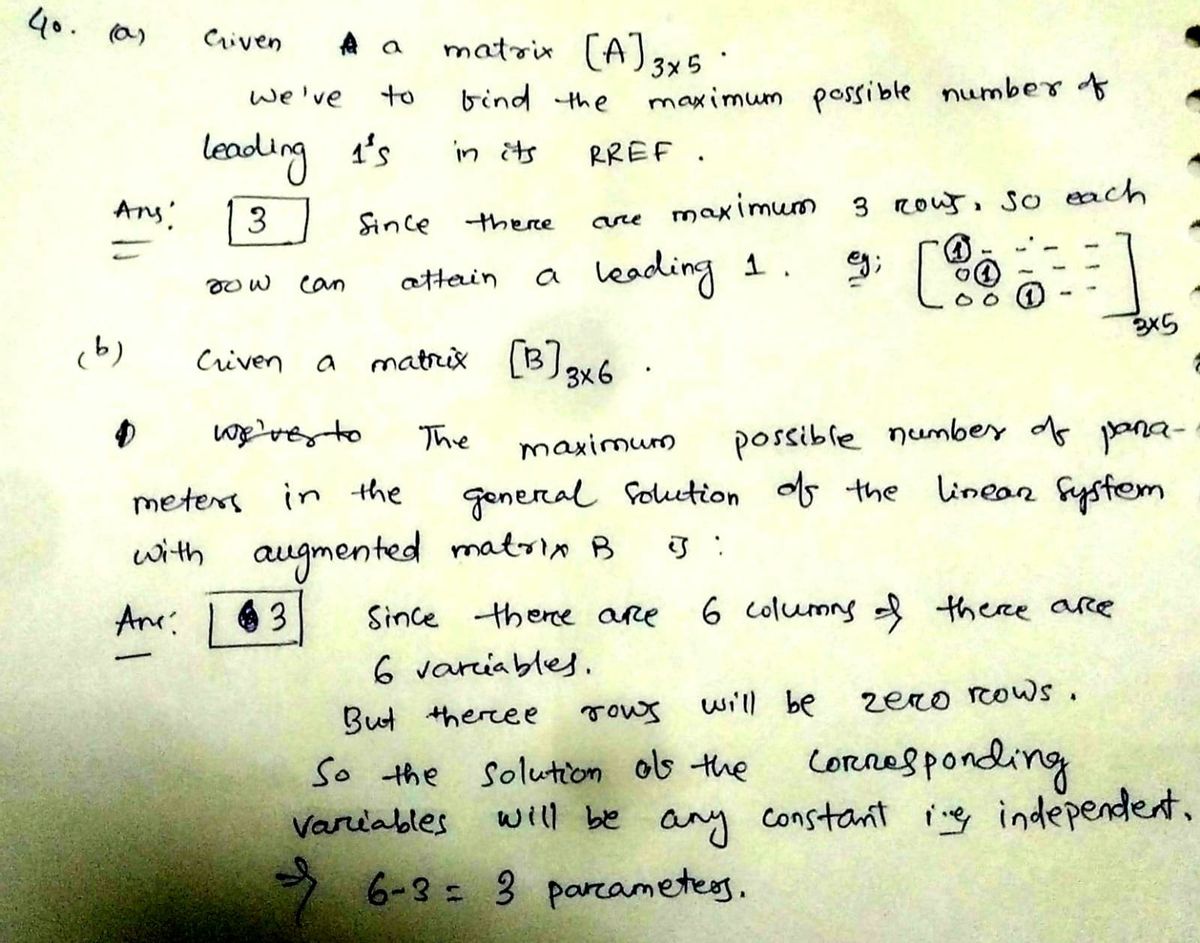 40. (a) Given a matrix [A]3x5 .
we've to find the maximum possible number of
leading 1's in its RREF .
Ans: 3 Since there are maximum 3 rows, so each
row can attain a leading 1. eg; [ 1 - - - -
0 1 - - -
0 0 1 - - ]3x5
(b) Given a matrix [B]3x6 .
we've to The maximum possible number of para-
meters in the general solution of the linear system
with augmented matrix B is :
Ans: 3 Since there are 6 columns ⇒ there are
6 variables.
But theree rows will be zero rows.
So the solution of the corresponding
variables will be any constant i.e, independent.
⇒ 6-3 = 3 parameters.